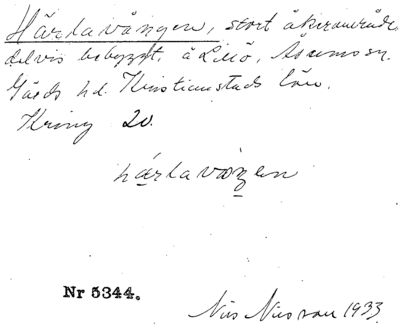 Härlavången, stort åkerområde,
delvis bebyggt, å Lillö, Åsums sn.
Gärds hd. Kristianstads län.
Kring 20.
hárlavɑŋen
Nr 5344.
Nils Nilsson 1933